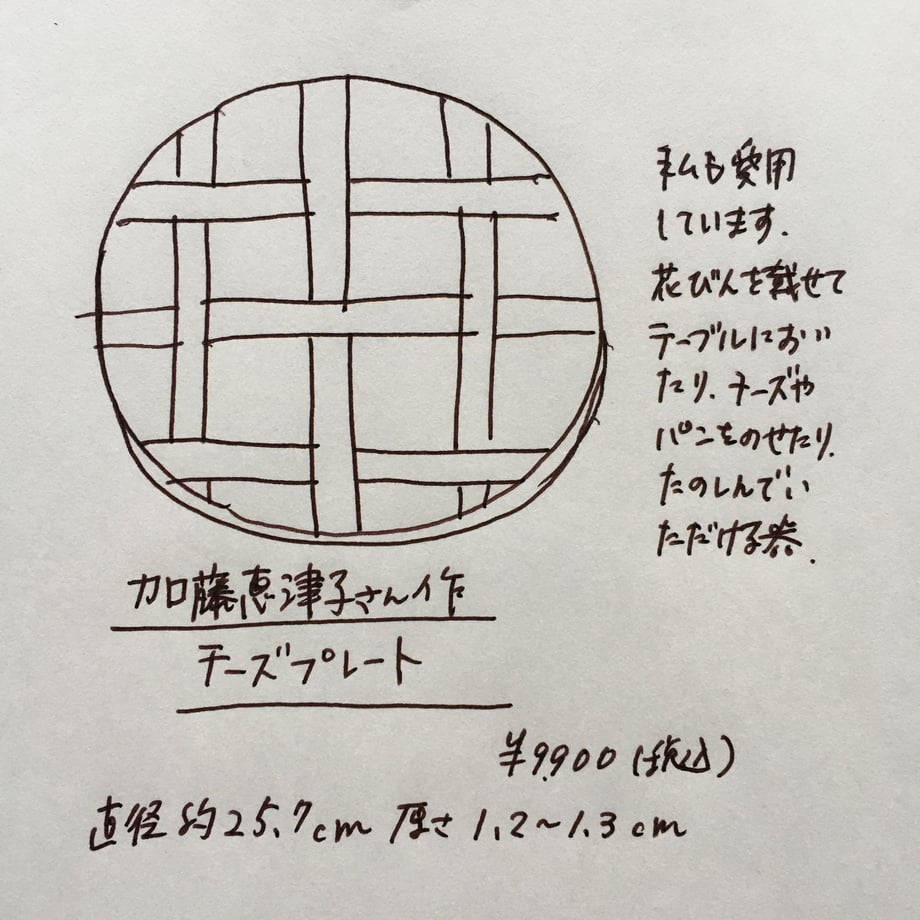 私も愛用
しています.
花びんを載せて
テーブルにおい
たり.チーズや
パンをのせたり.
たのしんでい
ただける器.
加藤恵津子さん作
チーズプレート
¥9,900(税込)
直径約25.7cm 厚さ1.2~1.3cm